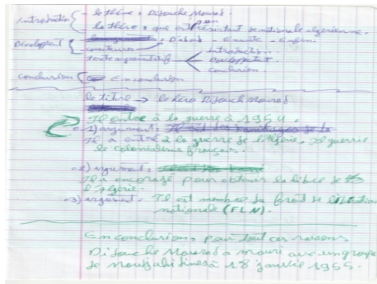 introduction le thème : Didouche Mourad.
la thèse : que
Developpent : D'abord - Ensuite - Enfin
introduction
texte Developpent
conclusion
conclusion En conclusion
le titre → le héro Didouche Mourad
Il entre à la guerre à 1954.
1) argument :
Il a à la guerre de l'Algérie, Il guerrie
le colonialisme français.
2) argument :
Il a encoragé pour obtenir la libre de
l'Algérie.
3) argument : Il est membre de front de libération
nationale (FLN).
En conclusions pour tout ces raisons
Didouche Mourad a mouri avec un groupe
de à 18 janvier 1955.